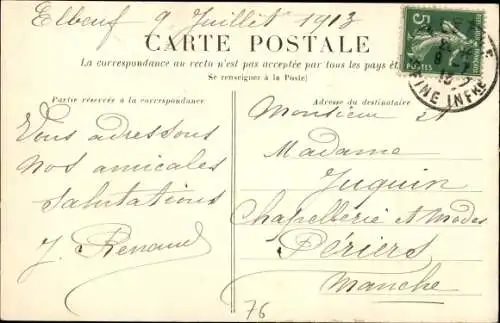 Elbeuf 9 Juillet 1913
CARTE POSTALE
La correspondance au recto n'est pas acceptée par tous les pays
Se renseigner à la Poste)
Partie réservée à la correspondance
Vous adressons
nos amicales
salutations
J. Renaud
Adresse du destinataire
Monsieur et
Madame
Juquin
Chapellerie et Modes
Périers
Manche
76
5
POSTES
INFRE